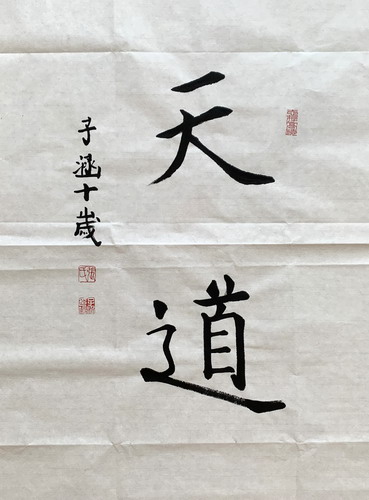 天道
子涵十歲